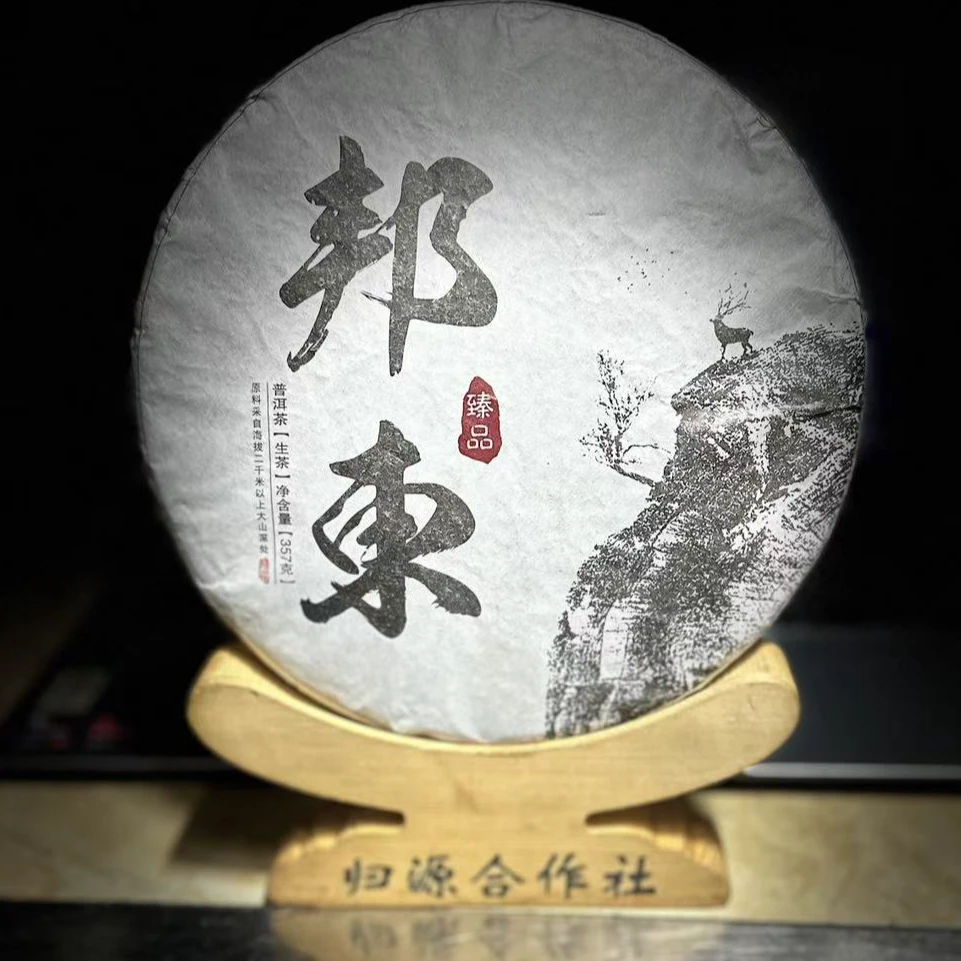 邦東
臻品
普洱茶【生茶】净含量【357克】
原料采自海拔二千米以上大山深处
归源合作社